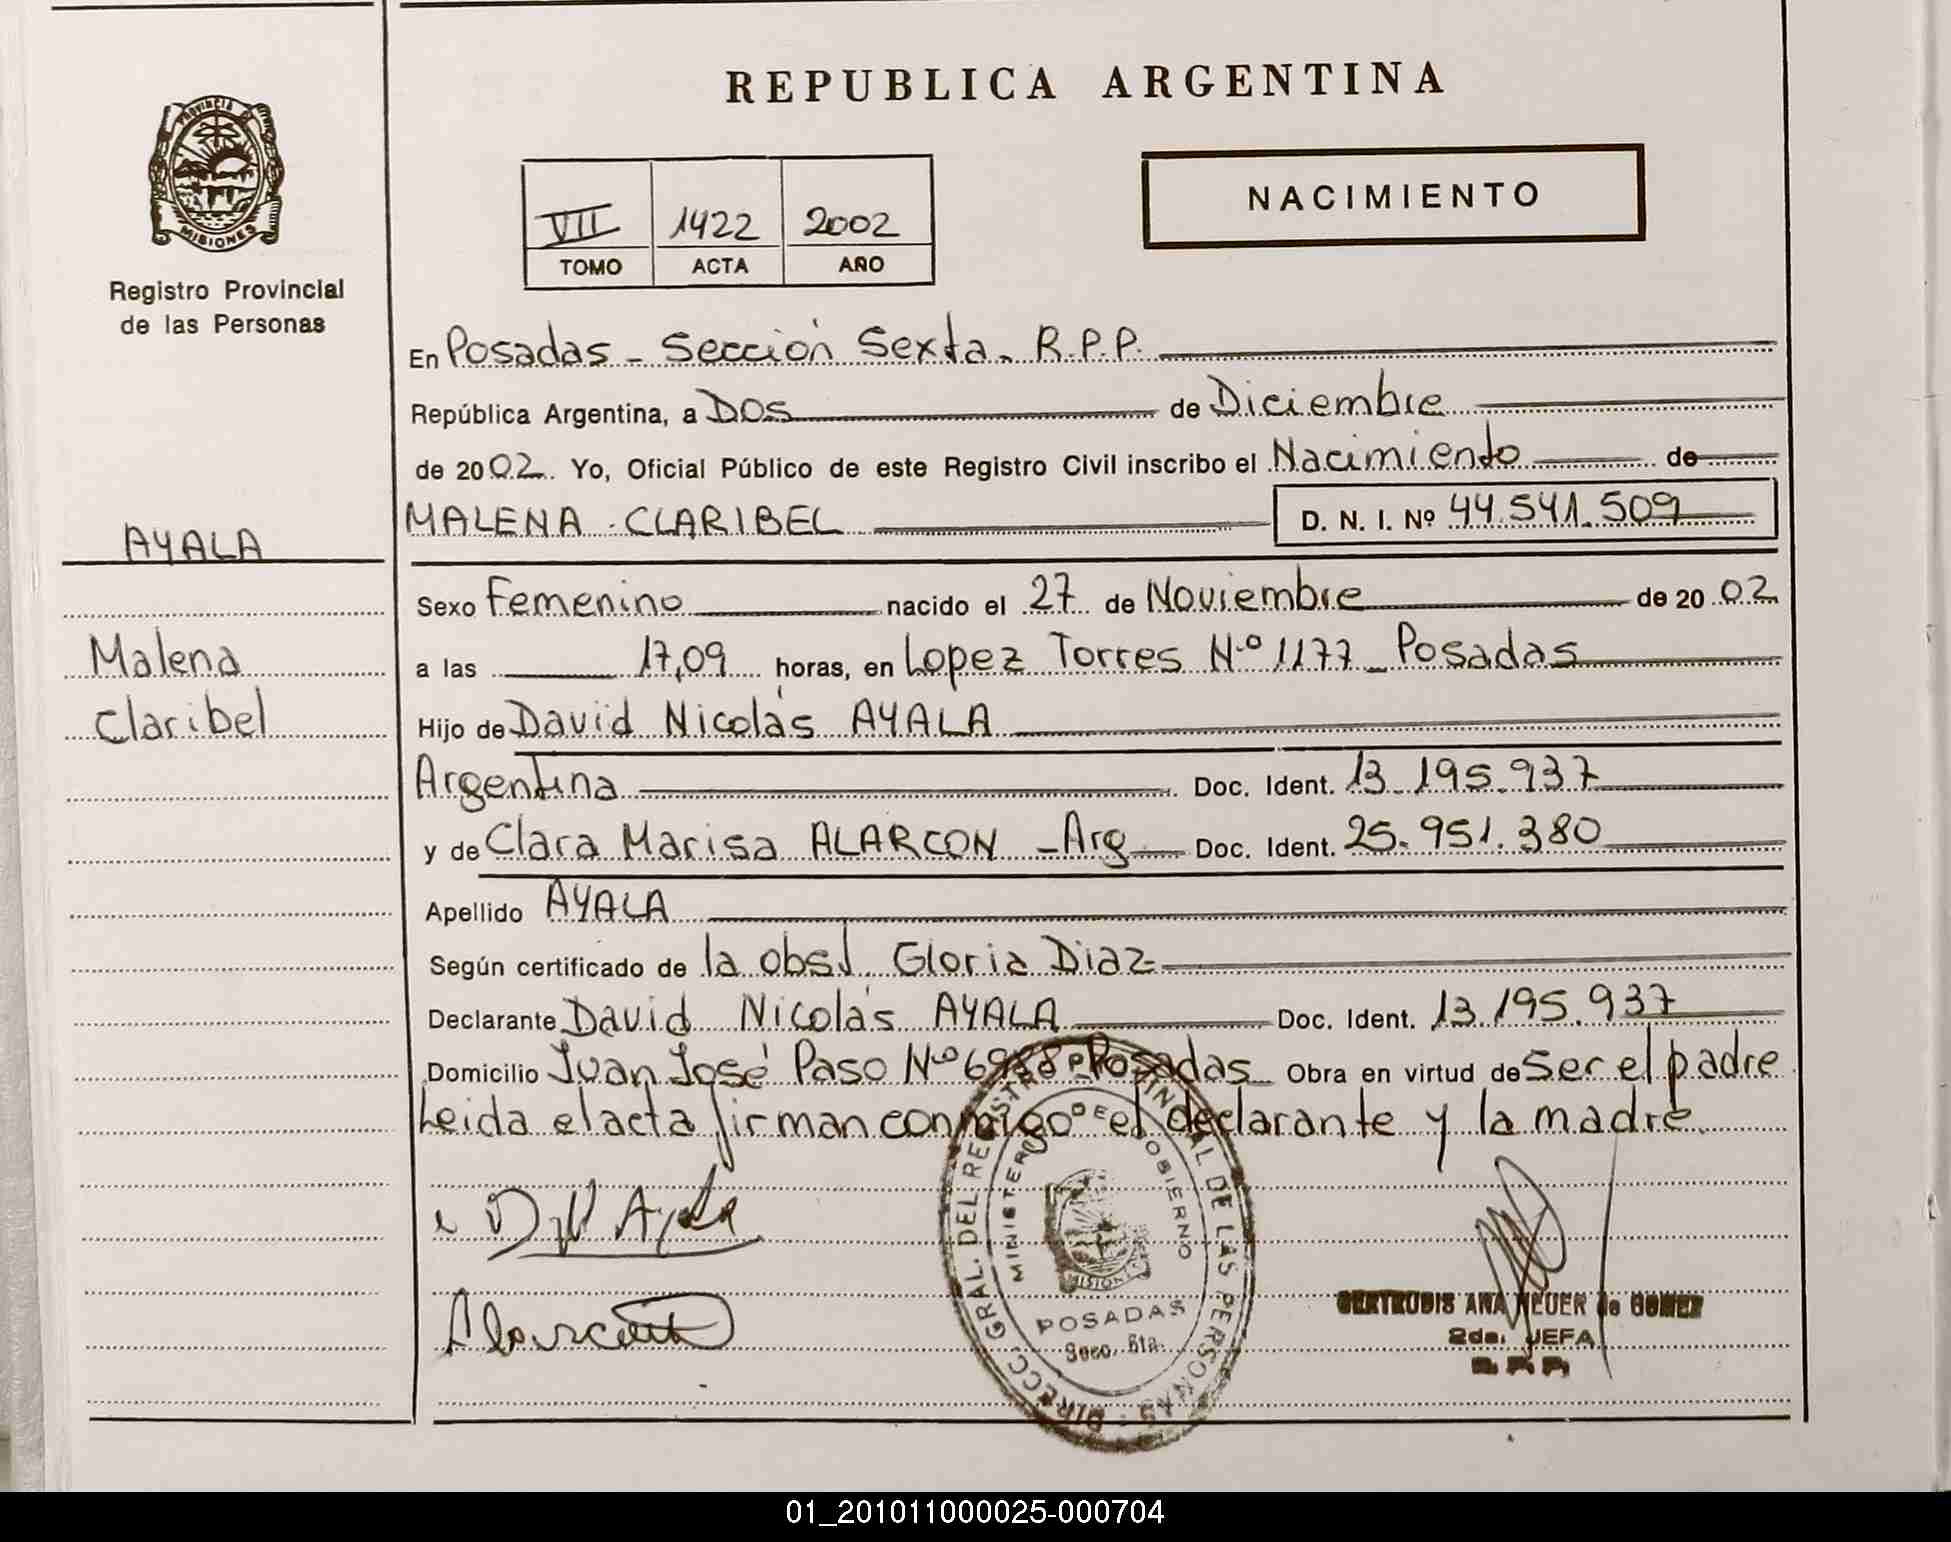 REPUBLICA ARGENTINA
PROVINCIA
MISIONES
Registro Provincial
de las Personas
NACIMIENTO
VII 1422 2002
TOMO ACTA AÑO
En Posadas - Sección Sexta. R.P.P.
República Argentina, a DOS de Diciembre
de 2002. Yo, Oficial Público de este Registro Civil inscribo el Nacimiento de
MALENA CLARIBEL D. N. I. Nº 44.541.509
AYALA
Malena
Claribel
Sexo Femenino nacido el 27 de Noviembre de 2002
a las 17,09 horas, en Lopez Torres Nº 1177 - Posadas
Hijo de David Nicolás AYALA
Argentina Doc. Ident. 13.195.937
y de Clara Marisa ALARCON - Arg Doc. Ident. 25.951.380
Apellido AYALA
Según certificado de la obst. Gloria Diaz
Declarante David Nicolás AYALA Doc. Ident. 13.195.937
Domicilio Juan José Paso Nº 6988 - Posadas Obra en virtud de ser el padre
Leida el acta firman conmigo el declarante y la madre
DIRECC. GRAL. DEL REGISTRO PROVINCIAL DE LAS PERSONAS
MINISTERIO DE GOBIERNO
MISIONES
POSADAS
Secc. 6ta.
GERTRUDIS ANA NEUER de GOMEZ
2da. JEFA
R.P.P.
01_201011000025-000704